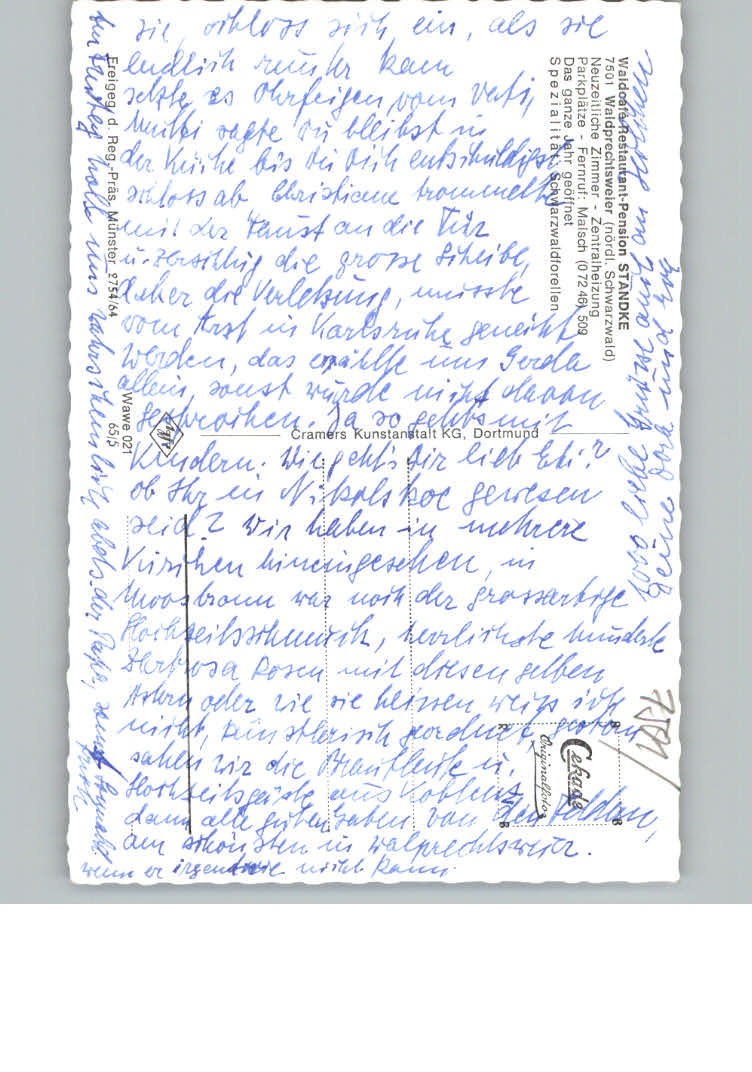 sie schloss sich ein, als sie
endlich runter kam
setzte es Ohrfeigen vom Vati,
Mutti sagte du bleibst in
der Küche bis du dich entschuldigst
schloss ab Christiane trommelte
mit der Faust an die Tür
u. zerschlug die grosse Scheibe,
daher die Verletzung, musste
vom Arzt in Karlsruhe genäht
werden, das erzählte uns Gerda
allein, sonst wurde nicht davon
gesprochen. Ja so gehts mit
Kindern. Wie geht's dir lieb
ob Ihr in Nikolskoe gewesen
seid? Wir haben in mehrere
Kirchen hineingesehen, in
Moosbronn war noch der grossartige
Hochzeitsschmuck, herrlichste hunderte
rosa Rosen mit diesen gelben
Astern oder wie sie heissen weiss ich
nicht, künstlerisch geordnet, gestern
sahen wir die Brautleute u.
Hochzeitsgäste aus Koblenz
dann alle guten Gaben von den Feldern,
am schönsten in Walprechtsweier.
Am Freitag holt uns wahrscheinlich abds. der Papa, sonst
wenn er irgendwie nicht kann.
1000 liebe Grüsse auch an
Deine Dora und
Waldcafé-Restaurant-Pension STANDKE
7501 Waldprechtsweier (nördl. Schwarzwald)
Neuzeitliche Zimmer - Zentralheizung
Parkplätze - Fernruf: Malsch (0 72 46) 509
Das ganze Jahr geöffnet
Spezialität: Schwarzwaldforellen
Freigeg. d. Reg.-Präs. Münster 2754/64
Wawe 021
65,5
Cramers Kunstanstalt KG, Dortmund
Cekade
Originalfoto